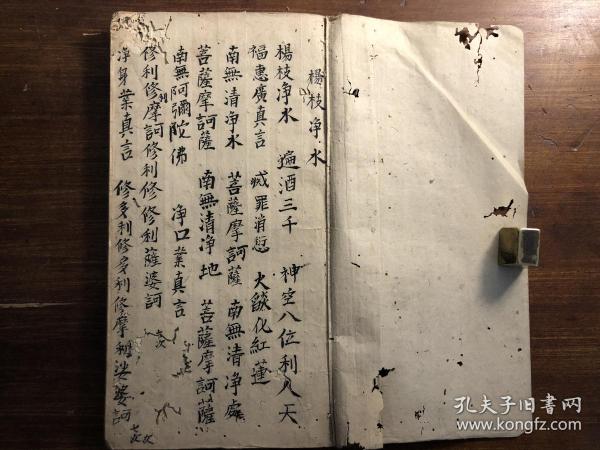 楊枝净水
楊枝净水 遍洒三千 神空八位利人天
福惠廣真言 㓕罪消愆 火燄化紅蓮
南無清净水 菩薩摩訶薩 南無清净處
菩薩摩訶薩 南無清净地 菩薩摩訶薩
南無阿彌陀佛 净口業真言
修利修利摩訶修利修修利薩婆訶
净身業真言 修多利修多利修摩利娑婆訶
孔夫子旧书网
www.kongfz.com